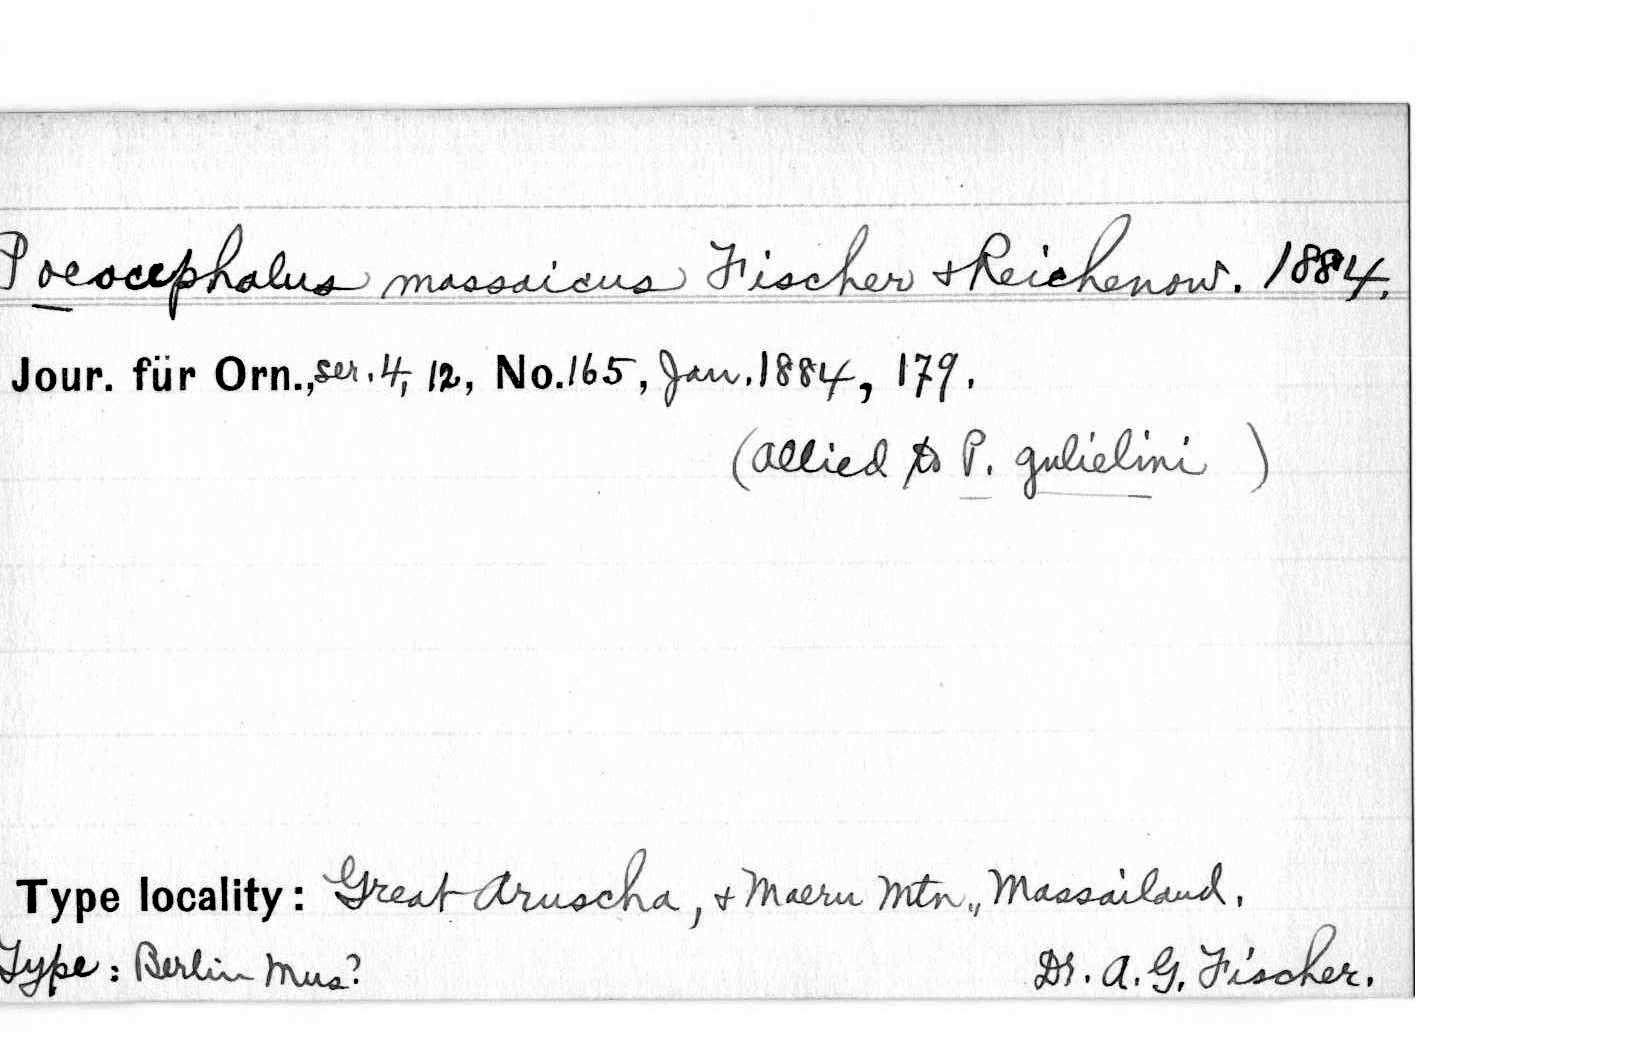 Poeocephalus massaicus Fischer & Reichenow. 1884.
Jour. für Orn., ser. 4, 12, No. 165, Jan. 1884, 179.
(allied to P. gulielini )
Type locality: Great Aruscha, & Maeru Mtn., Massailand.
Type: Berlin Mus? Dr. A. G. Fischer.